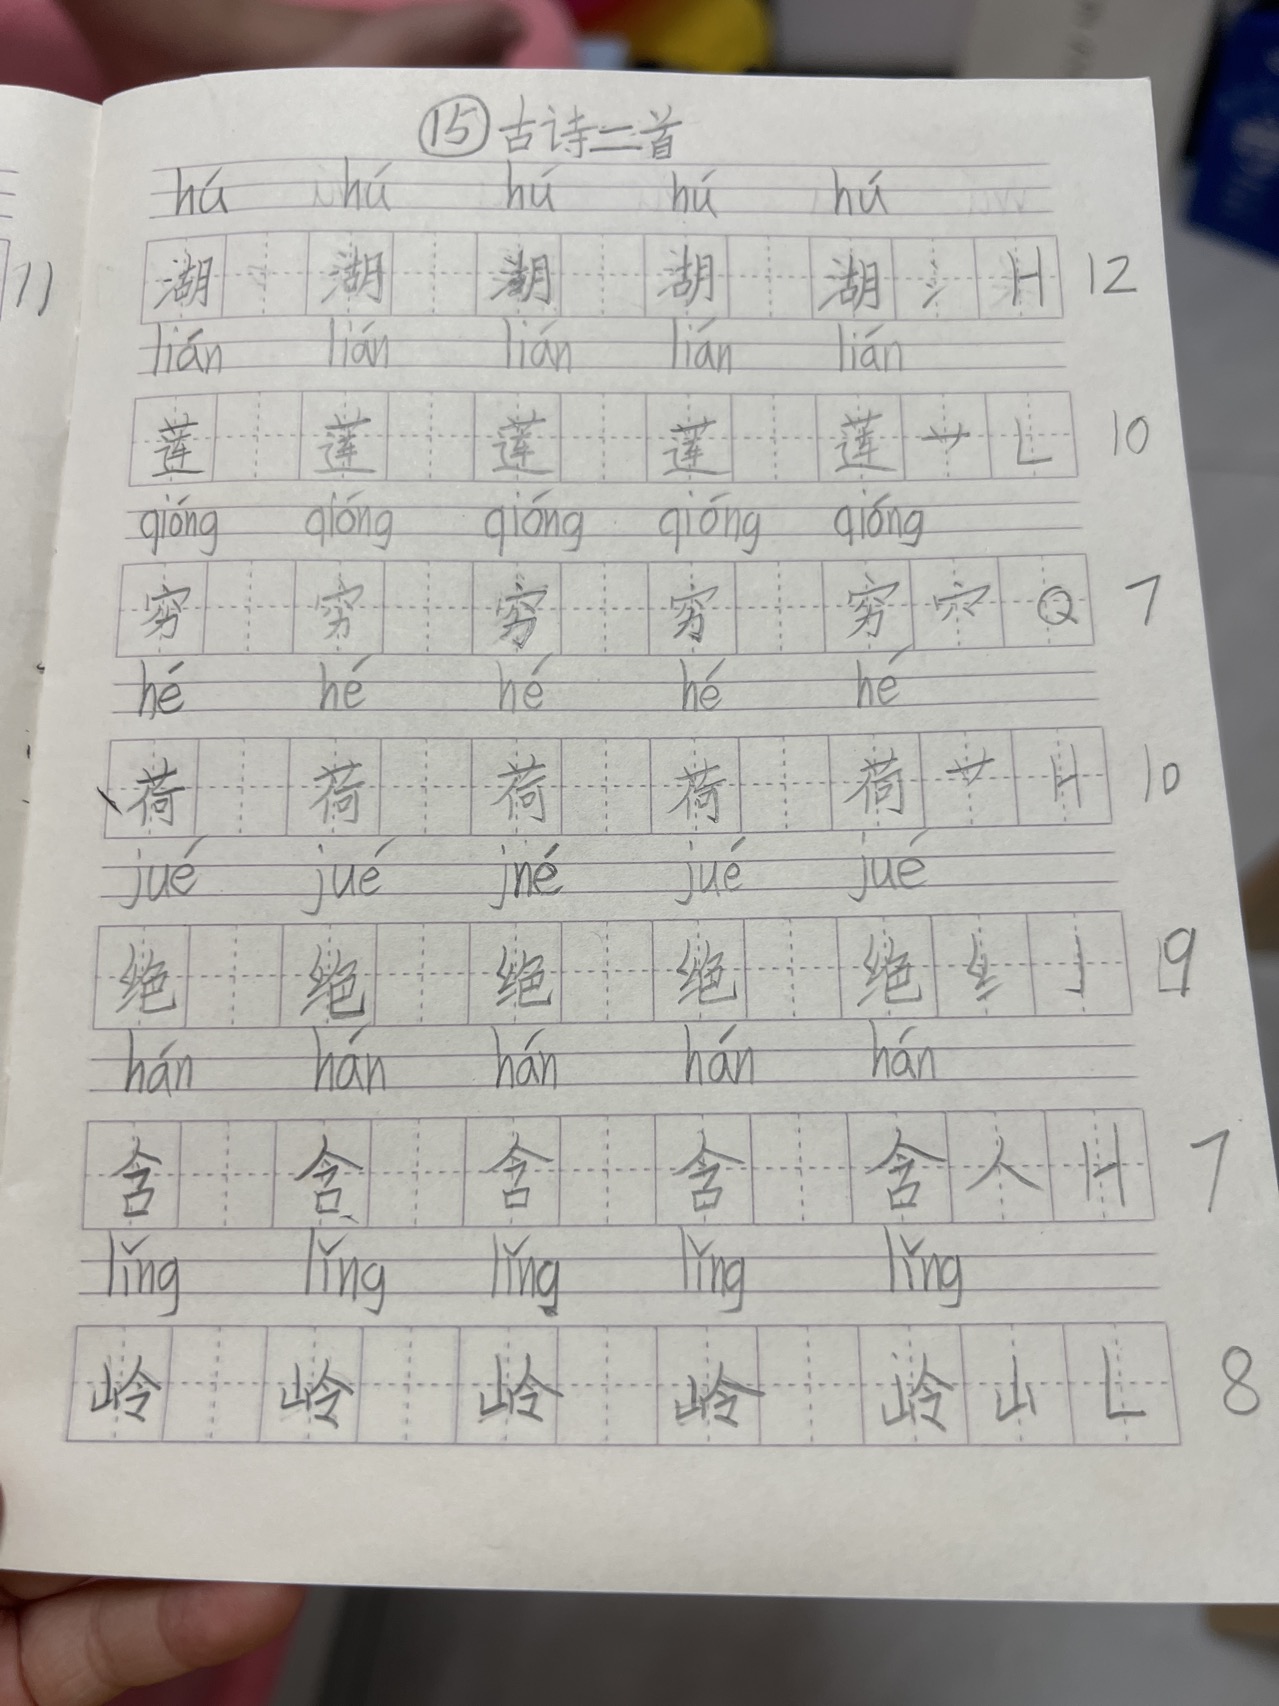 ⑮古诗二首
hú hú hú hú hú
湖 湖 湖 湖 湖 氵 H 12
lián lián lián lián lián
莲 莲 莲 莲 莲 艹 L 10
qióng qióng qióng qióng qióng
穷 穷 穷 穷 穷 穴 Q 7
hé hé hé hé hé
荷 荷 荷 荷 荷 艹 H 10
jué jué jné jué jué
绝 绝 绝 绝 绝 纟 J 9
hán hán hán hán hán
含 含 含 含 含 人 H 7
lǐng lǐng lǐng lǐng lǐng
岭 岭 岭 岭 岭 山 L 8